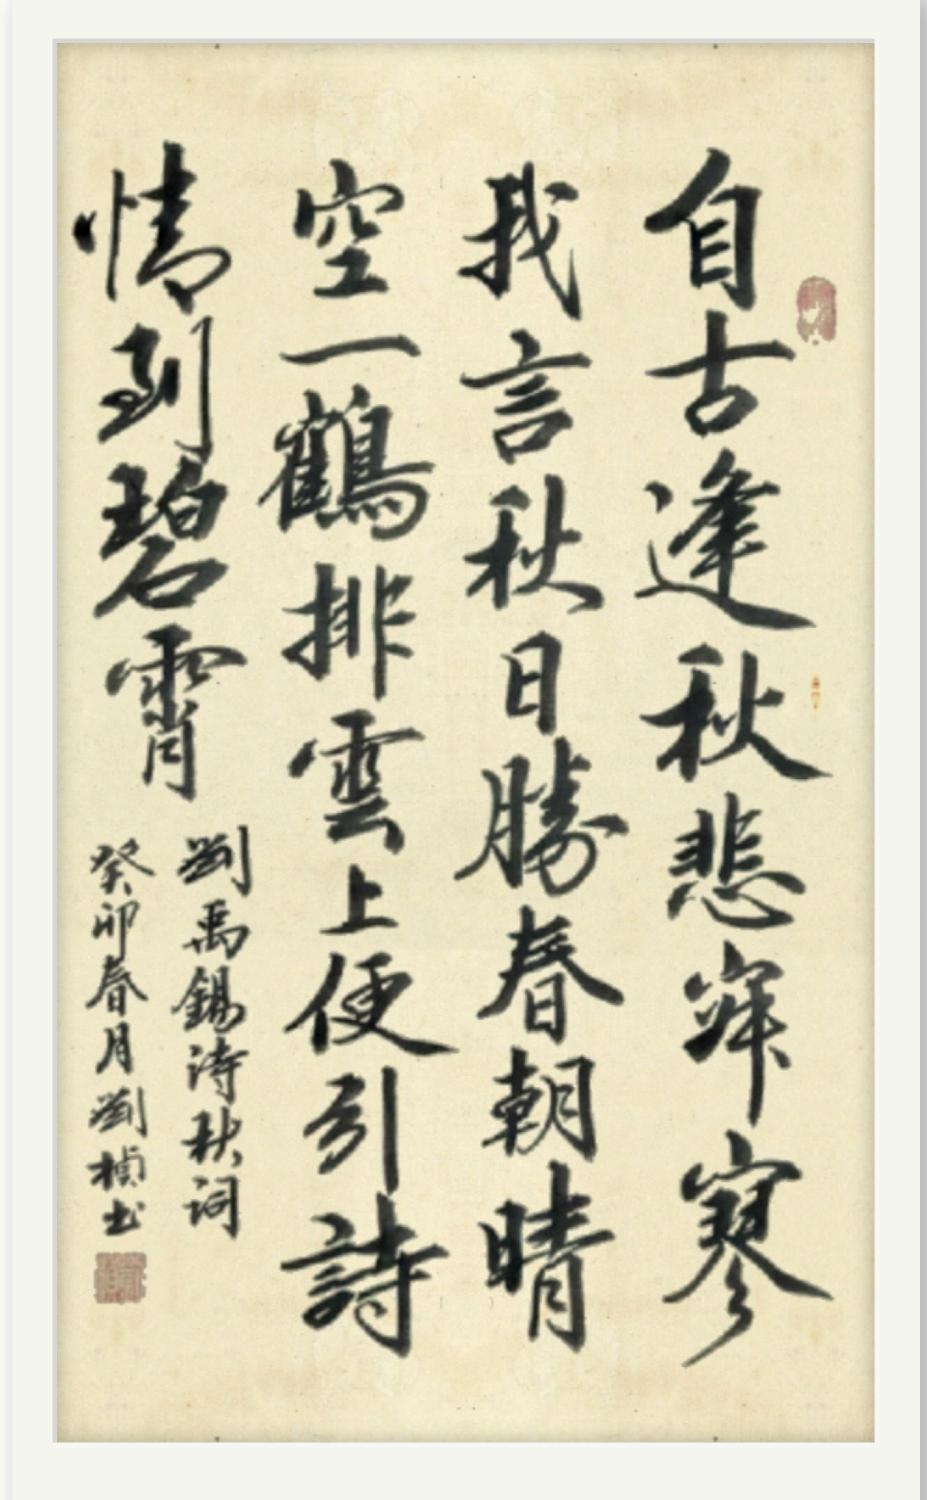 自古逢秋悲寂寥
我言秋日勝春朝晴
空一鶴排雲上便引詩
情到碧霄
劉禹錫詩秋詞
癸卯春月劉楨书